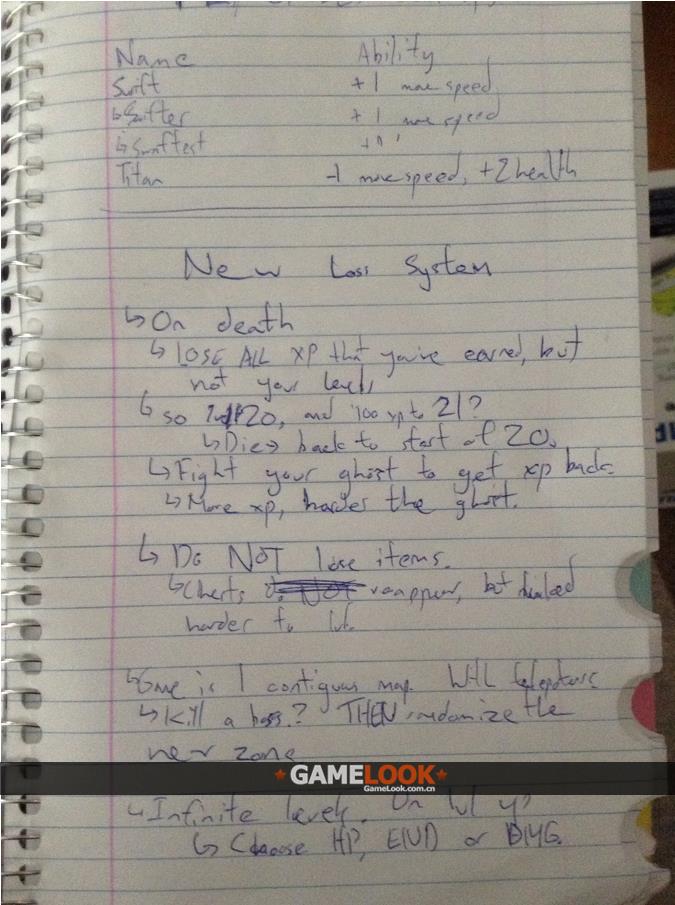 Name Ability
Swift + 1 move speed
↳ Swifter + 1 move speed
↳ Swiftest + "
Titan -1 move speed, +2 health
New Loss System
↳ On death
↳ LOSE ALL XP that you've earned, but
not your levels
↳ so 20, and 100 xp to 21?
↳ Die → back to start of 20.
↳ Fight your ghost to get xp back.
↳ More xp, harder the ghost.
↳ Do NOT lose items.
↳ Chests reappear, but
harder to
↳ Game is 1 contiguous map. With teleporters
↳ Kill a boss? THEN randomize the
new zone
GAMELOOK
GameLook.com.cn
↳ Infinite levels. On lvl up
↳ Choose HP, END or DMG.